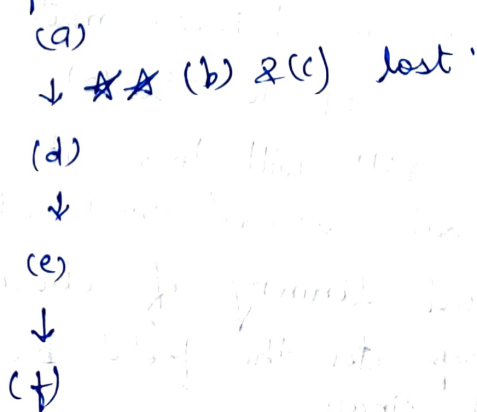 (a)
↓ ☆☆ (b) & (c) lost
(d)
↓
(e)
↓
(f)